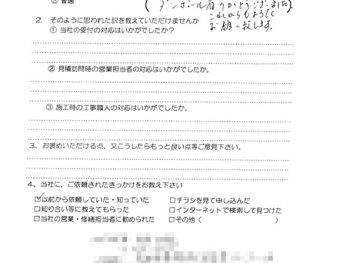 ② 普通
ありがとうございました
これからもよろしく
お願い致します。
2. そのように思われた訳を教えていただけませんか
① 当社の受付の対応はいかがでしたか?
② 見積訪問時の営業担当者の対応はいかがでしたか。
③ 施工時の工事職人の対応はいかがでしたか。
3、お褒めいただける点、又こうしたらもっと良い点等ご意見下さい。
4、当社に、ご依頼されたきっかけをお教え下さい
☑以前から依頼していた・知っていた □チラシを見て申し込んだ
□知り合い等に教えてもらった □インターネットで検索して見つけた
□当社の営業・修繕担当者に勧められた □その他( )